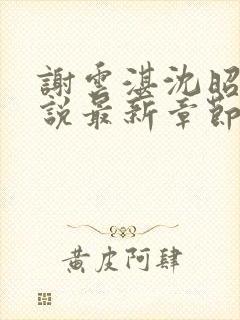 謝雲湛沈昭
說最新章節
黃皮阿肆